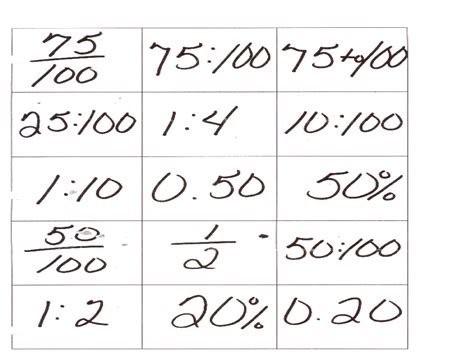 75/100 75:100 75 to 100
25:100 1:4 10:100
1:10 0.50 50%
50/100 1/2 50:100
1:2 20% 0.20